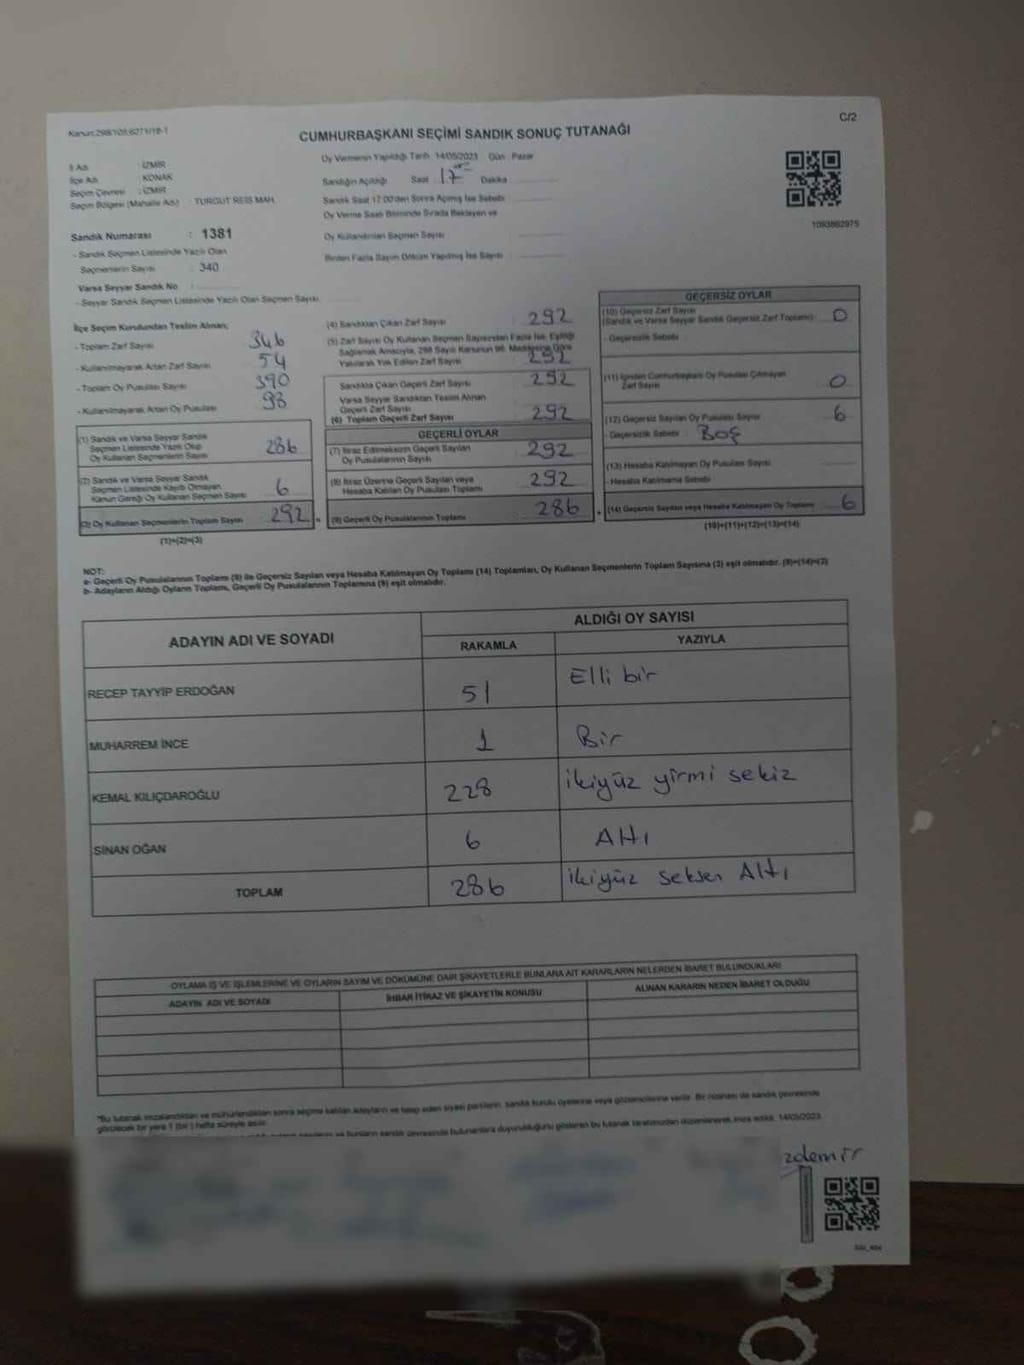 Kanun:298/105;6271/18-1
C/2
CUMHURBAŞKANI SEÇİMİ SANDIK SONUÇ TUTANAĞI
İl Adı : İZMİR
İlçe Adı : KONAK
Seçim Çevresi : İZMİR
Seçim Bölgesi (Mahalle Adı) TURGUT REİS MAH.
Oy Vermenin Yapıldığı Tarih 14/05/2023 Gün Pazar
Sandığın Açıldığı Saat 17 Dakika
Sandık Saat 17:00'den Sonra Açılmış İse Sebebi
Oy Verme Saati Bitiminde Sırada Bekleyen ve
Oy Kullandırılan Seçmen Sayısı
Birden Fazla Sayım Döküm Yapılmış İse Sayısı
1093862975
Sandık Numarası : 1381
- Sandık Seçmen Listesinde Yazılı Olan
Seçmenlerin Sayısı : 340
Varsa Seyyar Sandık No :
- Seyyar Sandık Seçmen Listesinde Yazılı Olan Seçmen Sayısı
İlçe Seçim Kurulundan Teslim Alınan;
- Toplam Zarf Sayısı 346
- Kullanılmayarak Artan Zarf Sayısı 54
- Toplam Oy Pusulası Sayısı 390
- Kullanılmayarak Artan Oy Pusulası 98
(1) Sandık ve Varsa Seyyar Sandık
Seçmen Listesinde Yazılı Olup
Oy Kullanan Seçmenlerin Sayısı 286
(2) Sandık ve Varsa Seyyar Sandık
Seçmen Listesinde Kayıtlı Olmayan
Kanun Gereği Oy Kullanan Seçmen Sayısı 6
(3) Oy Kullanan Seçmenlerin Toplam Sayısı 292
(1)+(2)=(3)
(4) Sandıktan Çıkan Zarf Sayısı : 292
(5) Zarf Sayısı Oy Kullanan Seçmen Sayısından Fazla İse, Eşitliği
Sağlamak Amacıyla, 298 Sayılı Kanunun 98. Maddesine Göre
Yakılarak Yok Edilen Zarf Sayısı 292
Sandıkta Çıkan Geçerli Zarf Sayısı : 292
Varsa Seyyar Sandıktan Teslim Alınan
Geçerli Zarf Sayısı
(6) Toplam Geçerli Zarf Sayısı : 292
GEÇERLİ OYLAR
(7) İtiraz Edilmeksizin Geçerli Sayılan
Oy Pusulalarının Sayısı 292
(8) İtiraz Üzerine Geçerli Sayılan veya
Hesaba Katılan Oy Pusulası Toplamı 292
(9) Geçerli Oy Pusulalarının Toplamı 286
GEÇERSİZ OYLAR
(10) Geçersiz Zarf Sayısı
(Sandık ve Varsa Seyyar Sandık Geçersiz Zarf Toplamı) 0
- Geçersizlik Sebebi
(11) İçinden Cumhurbaşkanı Oy Pusulası Çıkmayan
Zarf Sayısı 0
(12) Geçersiz Sayılan Oy Pusulası Sayısı 6
- Geçersizlik Sebebi Boş
(13) Hesaba Katılmayan Oy Pusulası Sayısı
- Hesaba Katılmama Sebebi
(14) Geçersiz Sayılan veya Hesaba Katılmayan Oy Toplamı 6
(10)+(11)+(12)+(13)=(14)
NOT:
a- Geçerli Oy Pusulalarının Toplamı (9) ile Geçersiz Sayılan veya Hesaba Katılmayan Oy Toplamı (14) Toplamları, Oy Kullanan Seçmenlerin Toplam Sayısına (3) eşit olmalıdır. (9)+(14)=(3)
b- Adayların Aldığı Oyların Toplamı, Geçerli Oy Pusulalarının Toplamına (9) eşit olmalıdır.
ADAYIN ADI VE SOYADI
ALDIĞI OY SAYISI
RAKAMLA YAZIYLA
RECEP TAYYİP ERDOĞAN 51 Elli bir
MUHARREM İNCE 1 Bir
KEMAL KILIÇDAROĞLU 228 ikiyüz yirmi sekiz
SİNAN OĞAN 6 Altı
TOPLAM 286 ikiyüz seksen Altı
OYLAMA İŞ VE İŞLEMLERİNE VE OYLARIN SAYIM VE DÖKÜMÜNE DAİR ŞİKAYETLERLE BUNLARA AİT KARARLARIN NELERDEN İBARET BULUNDUKLARI
ADAYIN ADI VE SOYADI İHBAR İTİRAZ VE ŞİKAYETİN KONUSU ALINAN KARARIN NEDEN İBARET OLDUĞU
"Bu tutanak imzalandıktan ve mühürlendikten sonra seçime katılan adayların ve talep eden siyasi partilerin, sandık kurulu üyelerine veya gözlemcilerine verilir. Bir nüshası da sandık çevresinde
görülecek bir yere 1 (bir) hafta süreyle asılır.
ve bunların sandık çevresinde bulunanlara duyurulduğunu gösteren bu tutanak tarafımızdan düzenlenerek imza edildi. 14/05/2023
zdemir